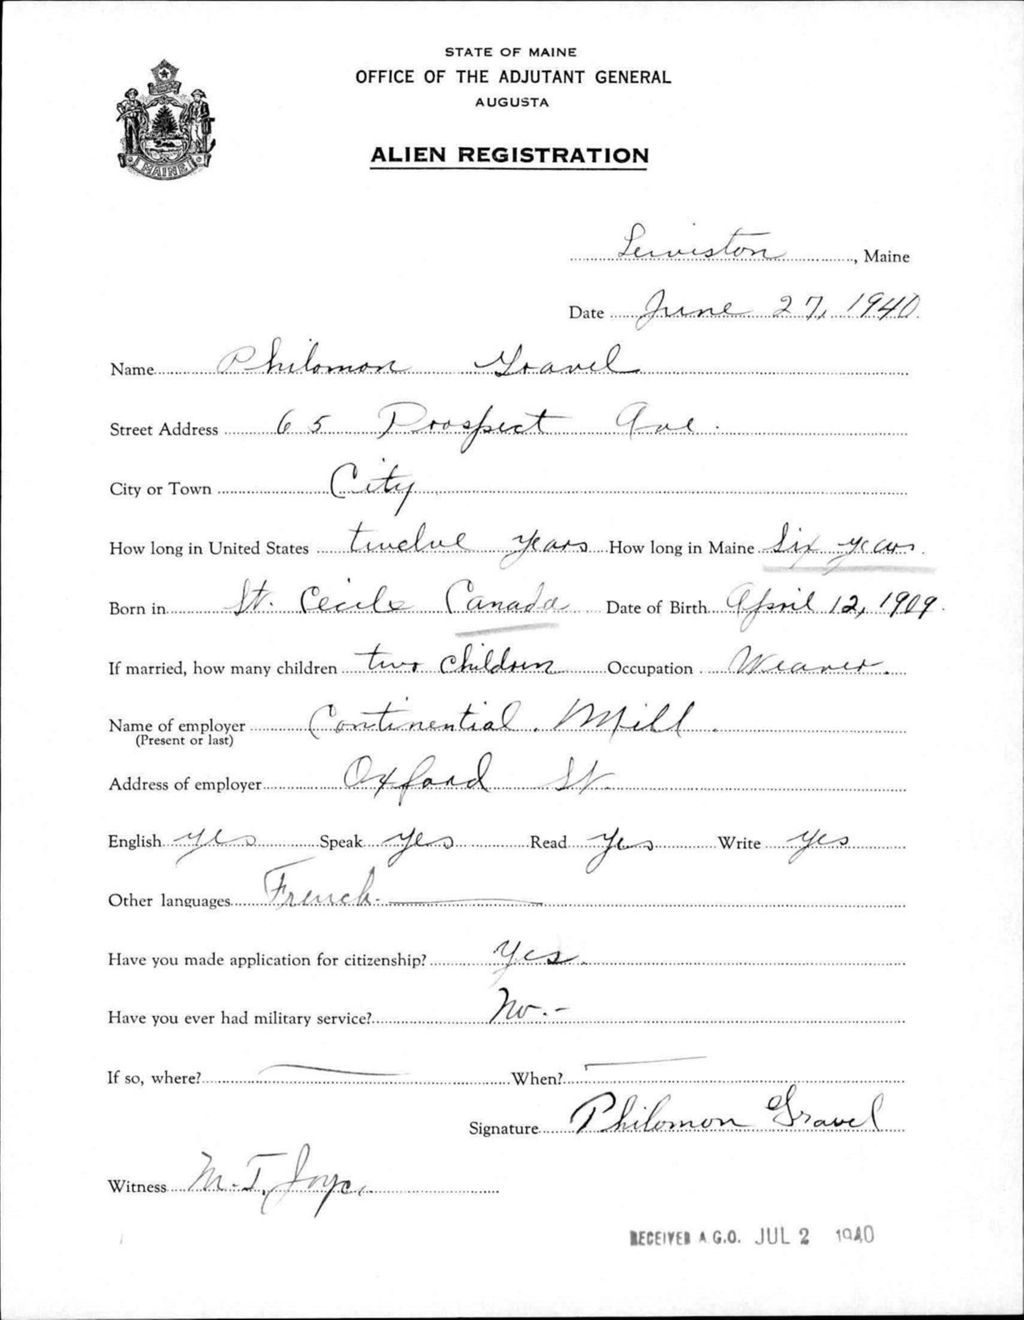 STATE OF MAINE
OFFICE OF THE ADJUTANT GENERAL
AUGUSTA
ALIEN REGISTRATION
MAINE
Lewiston, Maine
Date June 27, 1940
Name Philomon Gravel
Street Address 65 Prospect Ave.
City or Town City
How long in United States twelve years How long in Maine Six years.
Born in St. Cecile Canada Date of Birth April 12, 1909.
If married, how many children two children Occupation Weaver.
Name of employer Continential Mill.
(Present or last)
Address of employer Oxford St.
English yes Speak yes Read Yes Write yes
Other languages French.
Have you made application for citizenship? Yes.
Have you ever had military service? No.-
If so, where? When?
Signature Philomon Gravel
Witness M. T. Joyce
RECEIVED A.G.O. JUL 2 1940